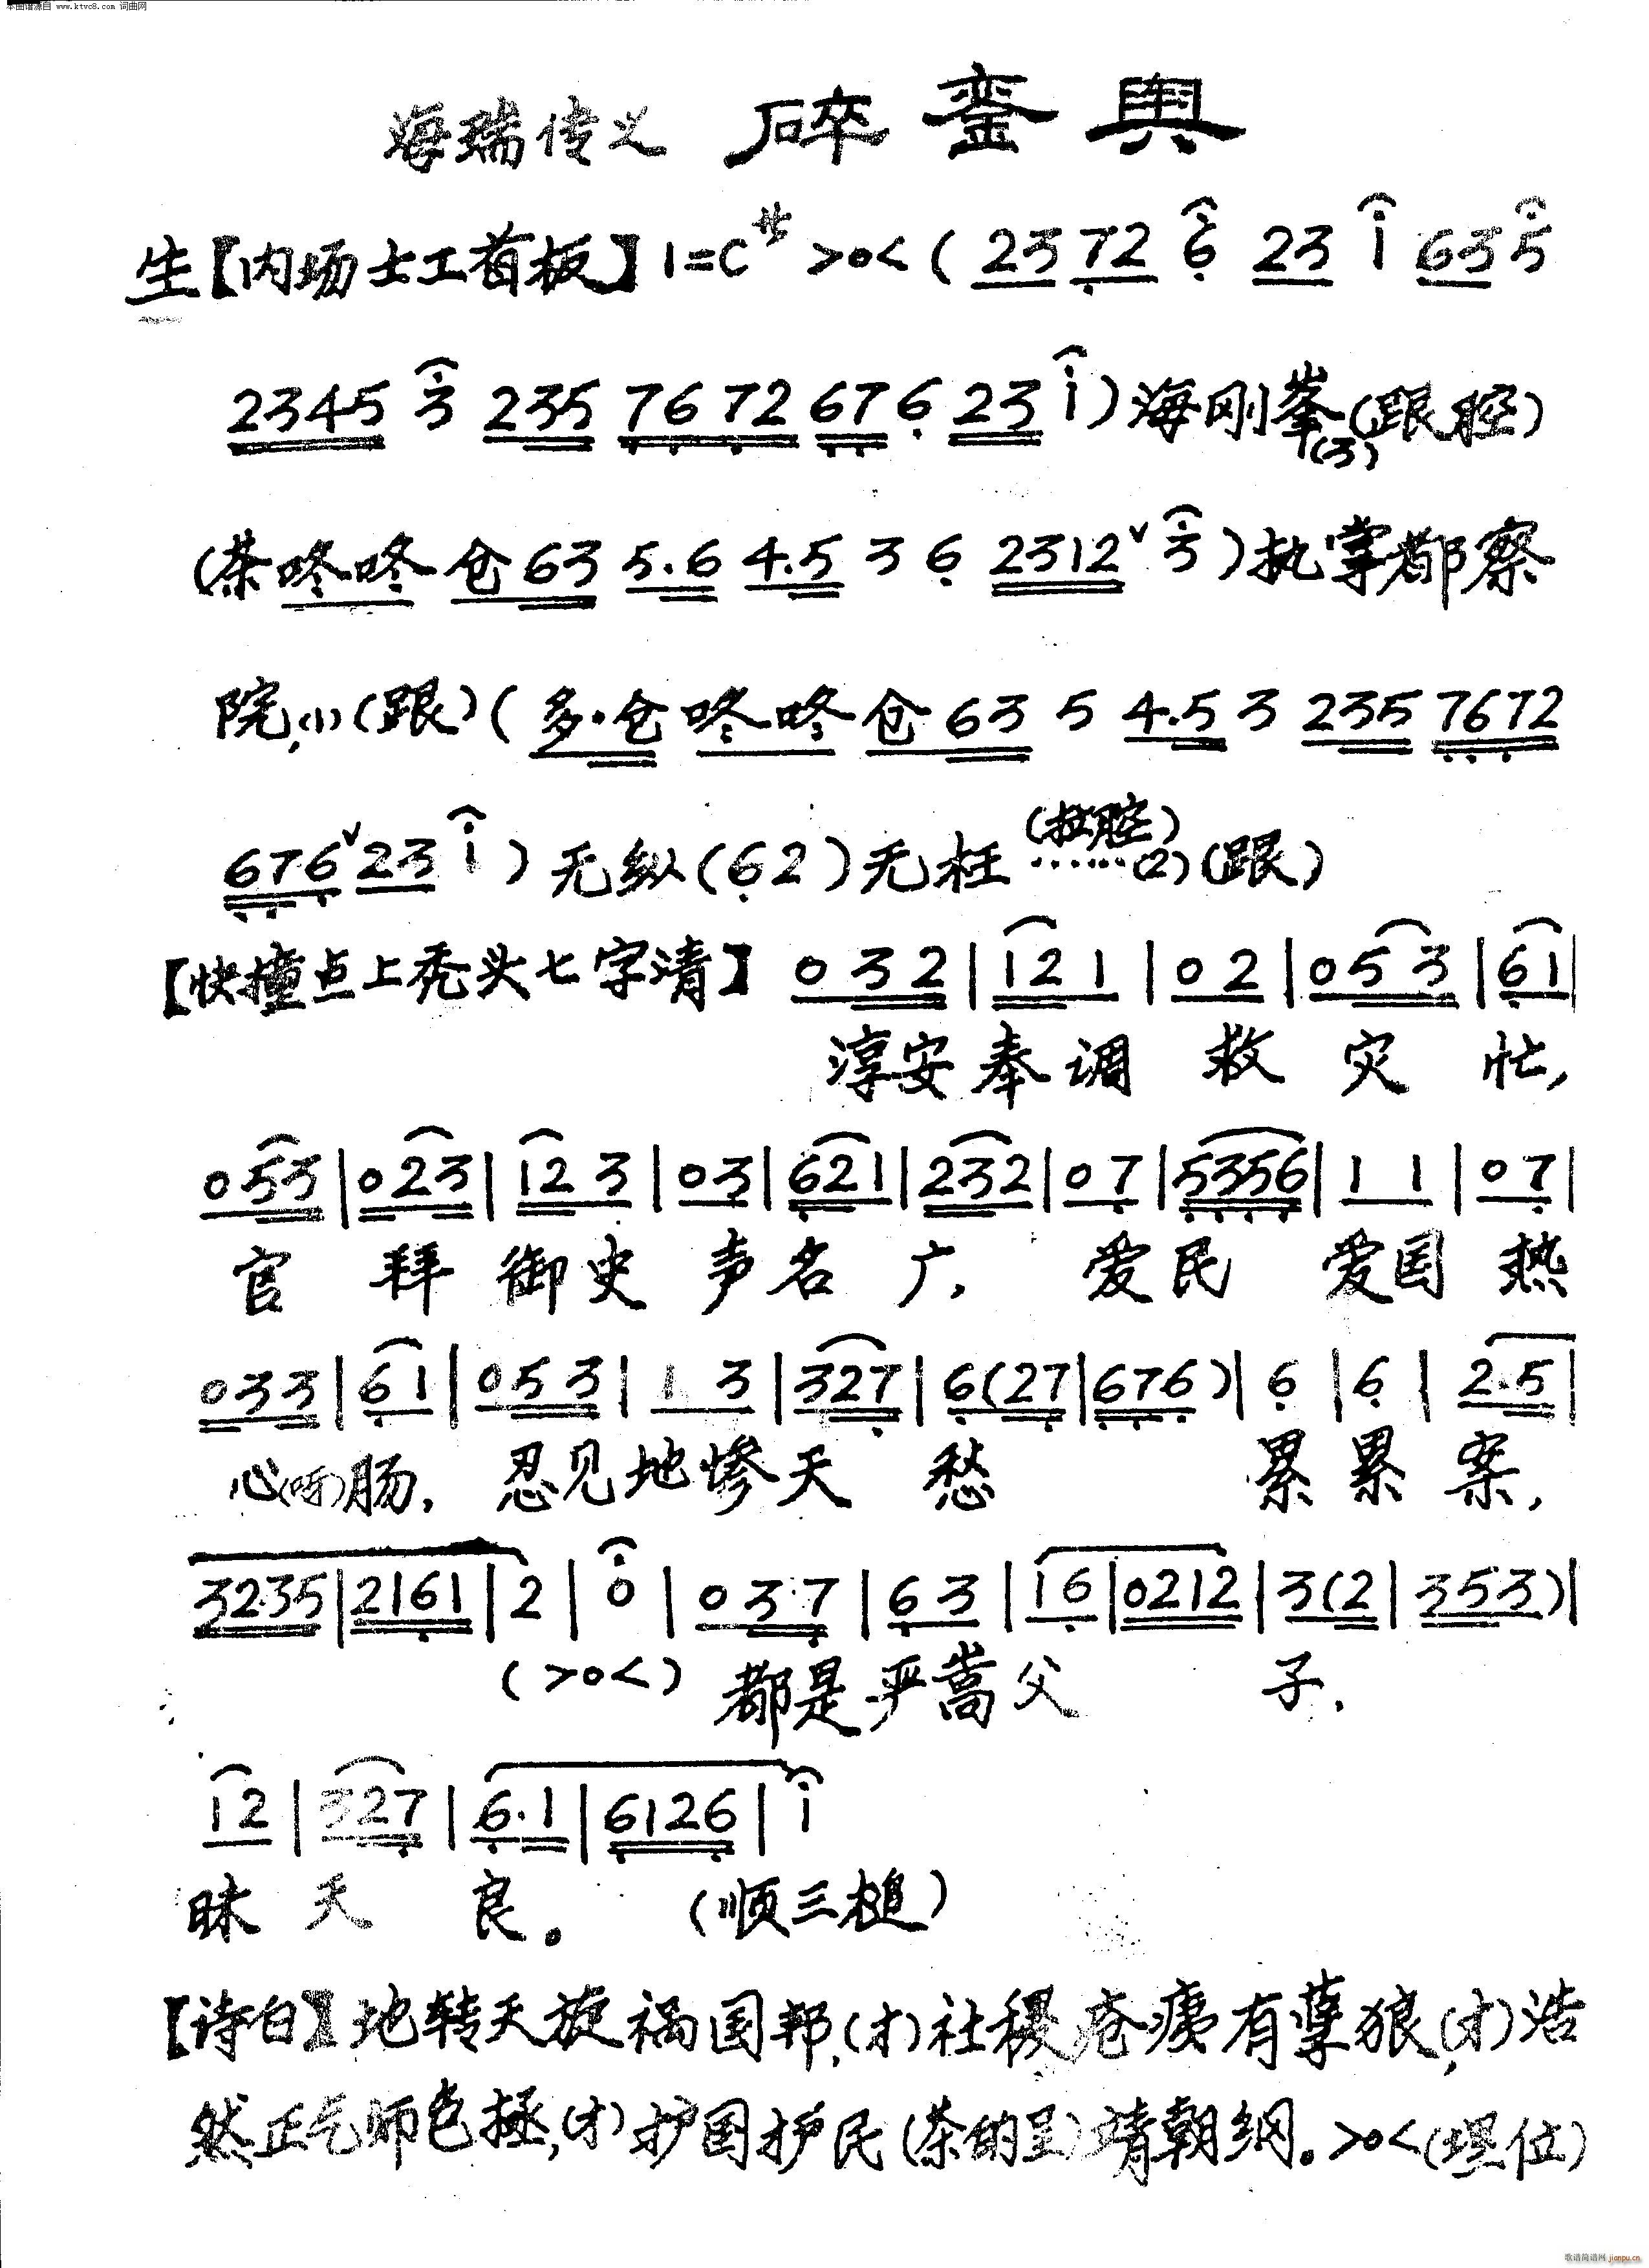 本曲谱源自 www.ktvc8.com 词曲网
海瑞传义 碎銮舆
生【内场士工首板】1=C サ >0<( 2372 6 23 i 635
2345 3 235 7672 676 23 i)海刚峯(3)(跟腔)
(茶咚咚仓63 5.6 4.5 3 6 2312ˇ3)执掌都察
院,(1)(跟)(多.仓咚咚仓63 5 4.5 3 235 7672
676ˇ23 i)无纵(62)无枉(拉腔)……(2)(跟)
【快撞点上秃头七字清】032|121|02|053|61|
淳安奉调救灾忙,
053|023|123|03|621|232|07|5356|11|07|
官拜御史声名广,爱民爱国热
033|61|053|13|327|6(27|676)|6|6|2.5|
心(啊)肠,忍见地惨天愁累累案,
3235|2161|2|0|037|63|16|0212|3(2|353)|
(>0<)都是严嵩父子,
12|327|6.1|6126|i
昧天良。(顺三槌)
【诗白】地转天旋祸国邦,(才)社稷疮痍有孽狼,(才)浩
然正气师包拯,(才)护国护民(茶的呈)靖朝纲。>0<(埋位)
歌谱简谱网 jianpu.cn